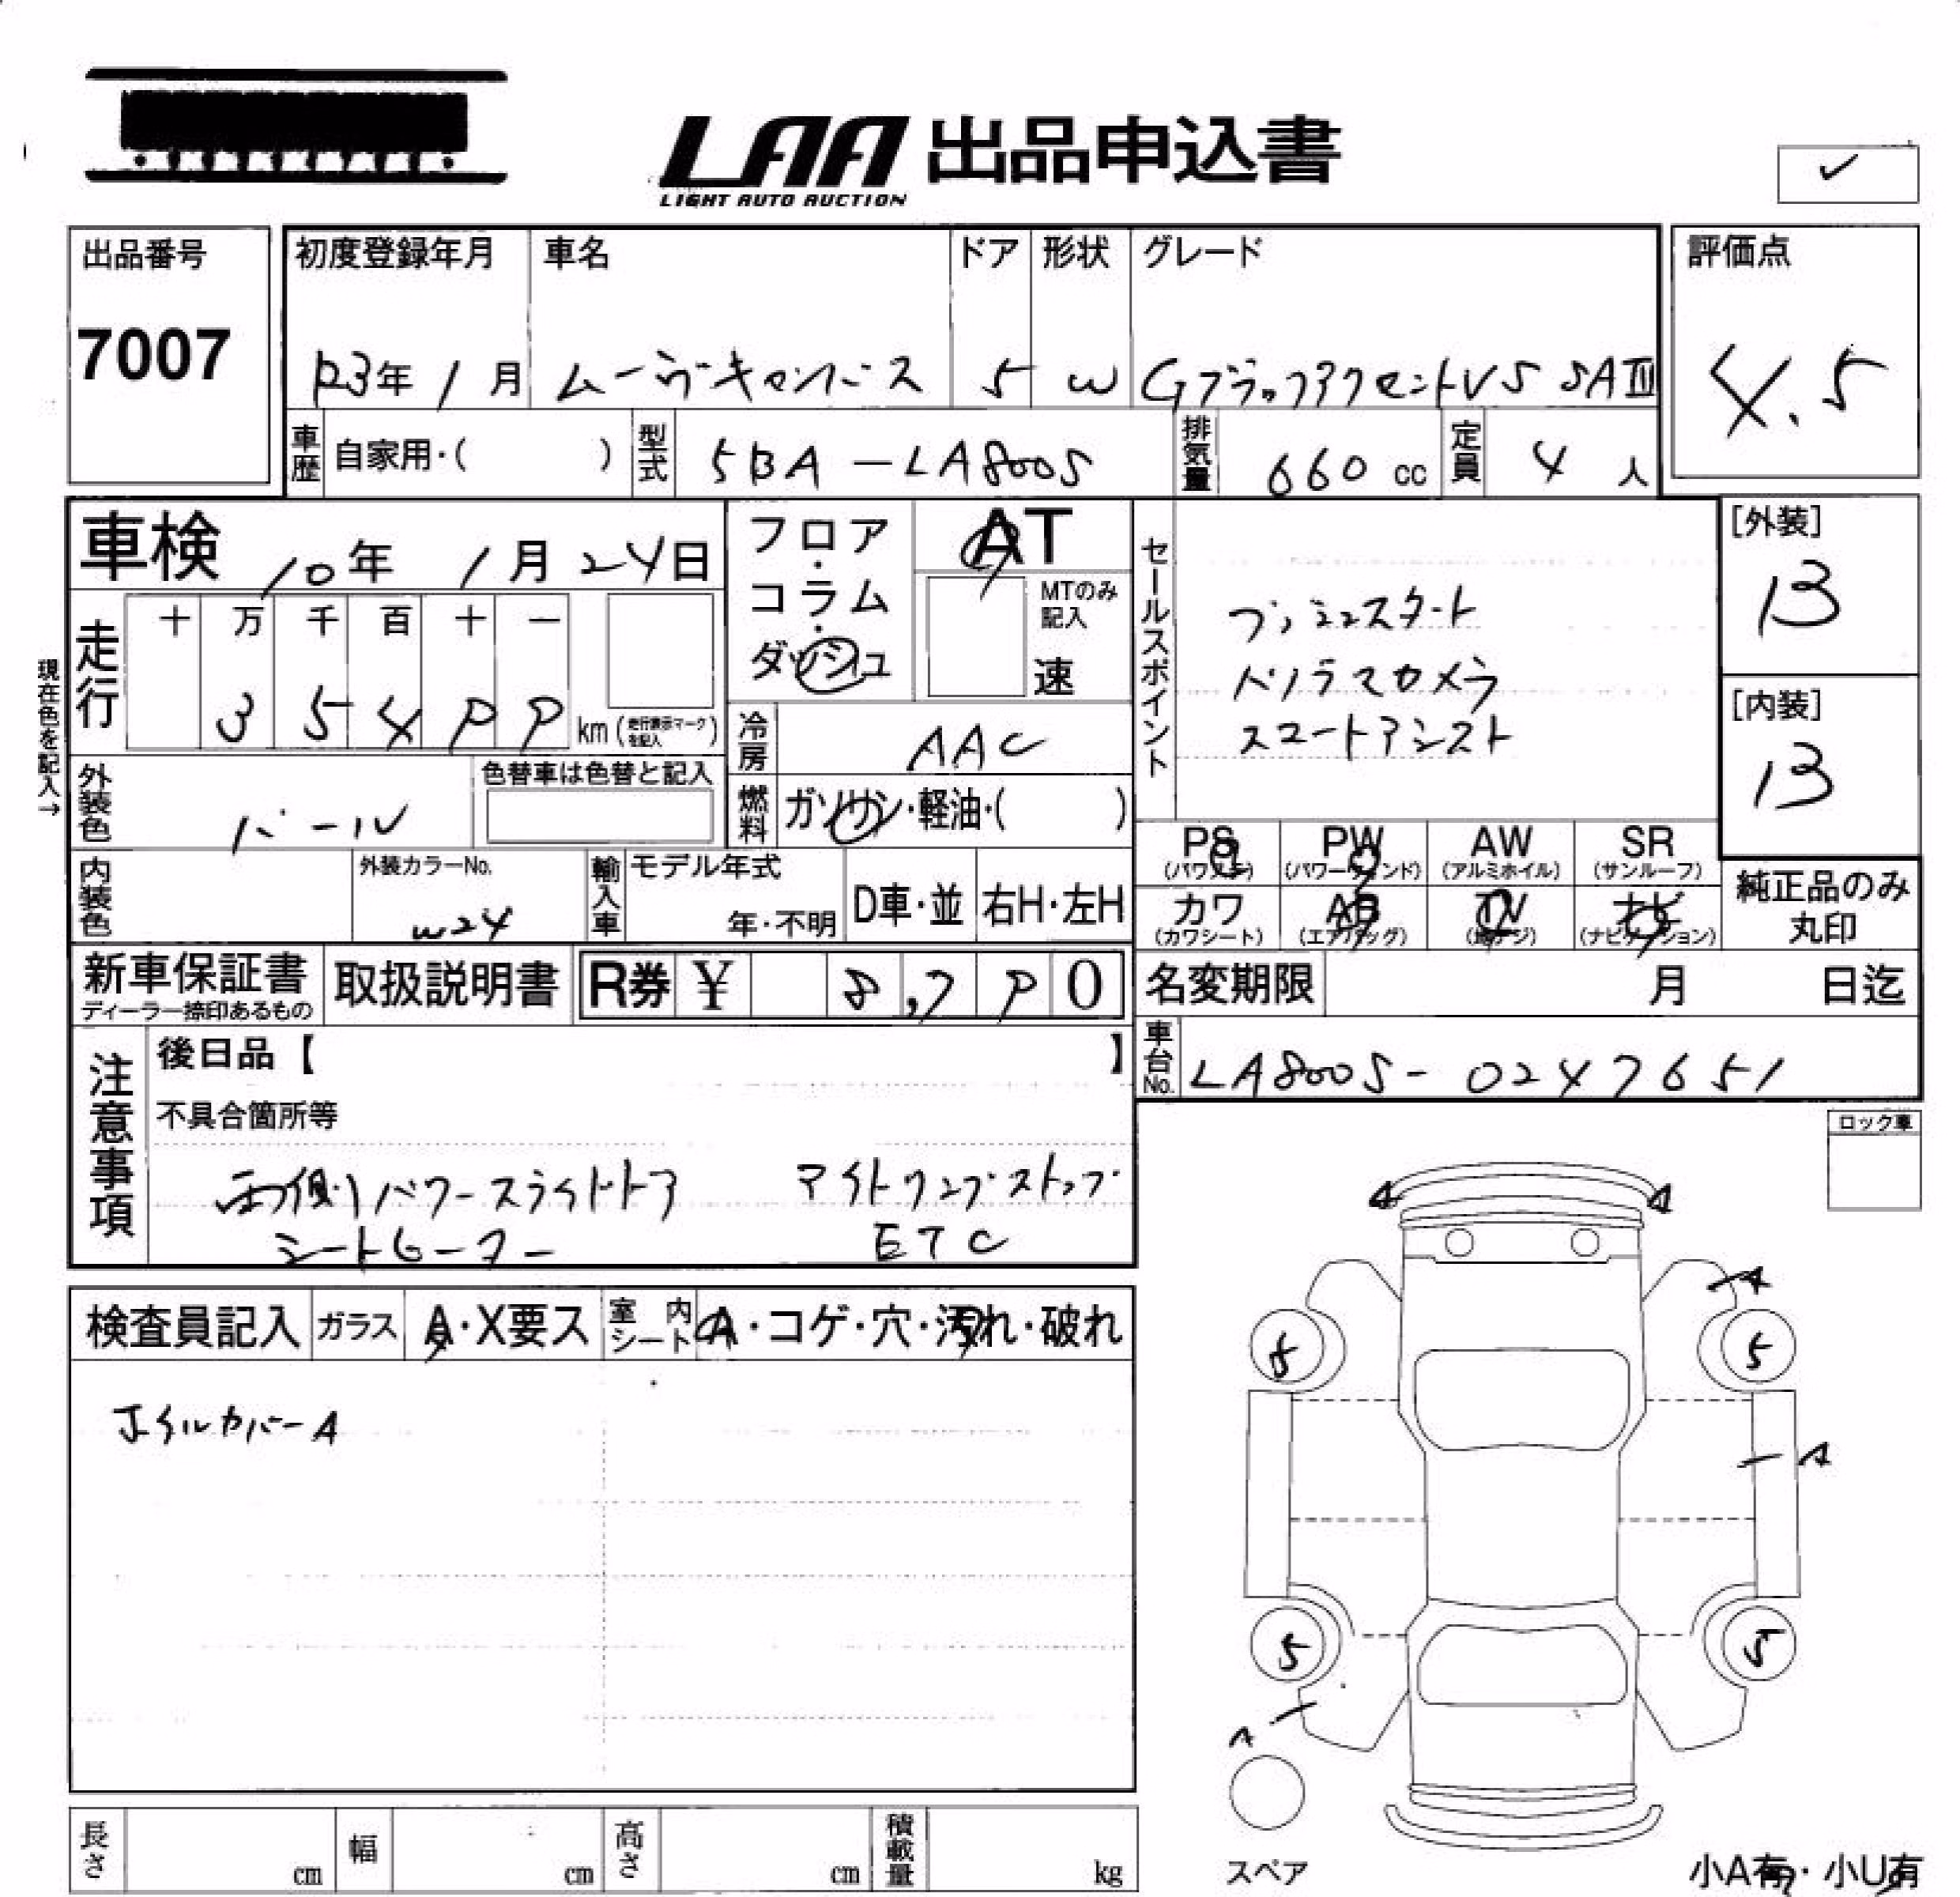 LAA 出品申込書
LIGHT AUTO AUCTION
✓
出品番号
7007
初度登録年月
R3年 1月
車名
ムーヴキャンバス
ドア
5
形状
W
グレード
GブラックアクセントVS SAⅢ
評価点
4.5
車歴 自家用・( )
型式 5BA-LA800S
排気量 660 cc
定員 4 人
車検 10年 1月 24日
フロア・コラム・ダッシュ
AT
MTのみ記入
速
現在色を記入→
走行 十 万 千 百 十 一
3 5 4
km (走行表示マークを記入)
冷房 AAC
燃料 ガソリン・軽油・( )
外装色 パール
色替車は色替と記入
内装色
外装カラーNo.
W24
輸入車 モデル年式
年・不明
D車・並
右H・左H
セールスポイント
プッシュスタート
パノラマカメラ
スマートアシスト
[外装]
B
[内装]
B
PS (パワステ)
PW (パワーウィンド)
AW (アルミホイル)
SR (サンルーフ)
カワ (カワシート)
AB (エアバッグ)
TV (地デジ)
ナビ (ナビゲーション)
純正品のみ丸印
新車保証書
ディーラー捺印あるもの
取扱説明書
R券 ¥ 8,7 0
名変期限 月 日迄
車台No. LA800S-0247651
注意事項
後日品【 】
不具合箇所等
両側パワースライドドア アイドリングストップ
シートヒーター ETC
ロック車
検査員記入
ガラス A・X要ス
室内シート A・コゲ・穴・汚れ・破れ
ホイルカバーA
A A
A
5 5
A
5 5
A
スペア
長さ cm
幅 cm
高さ cm
積載量 kg
小A有・小U有